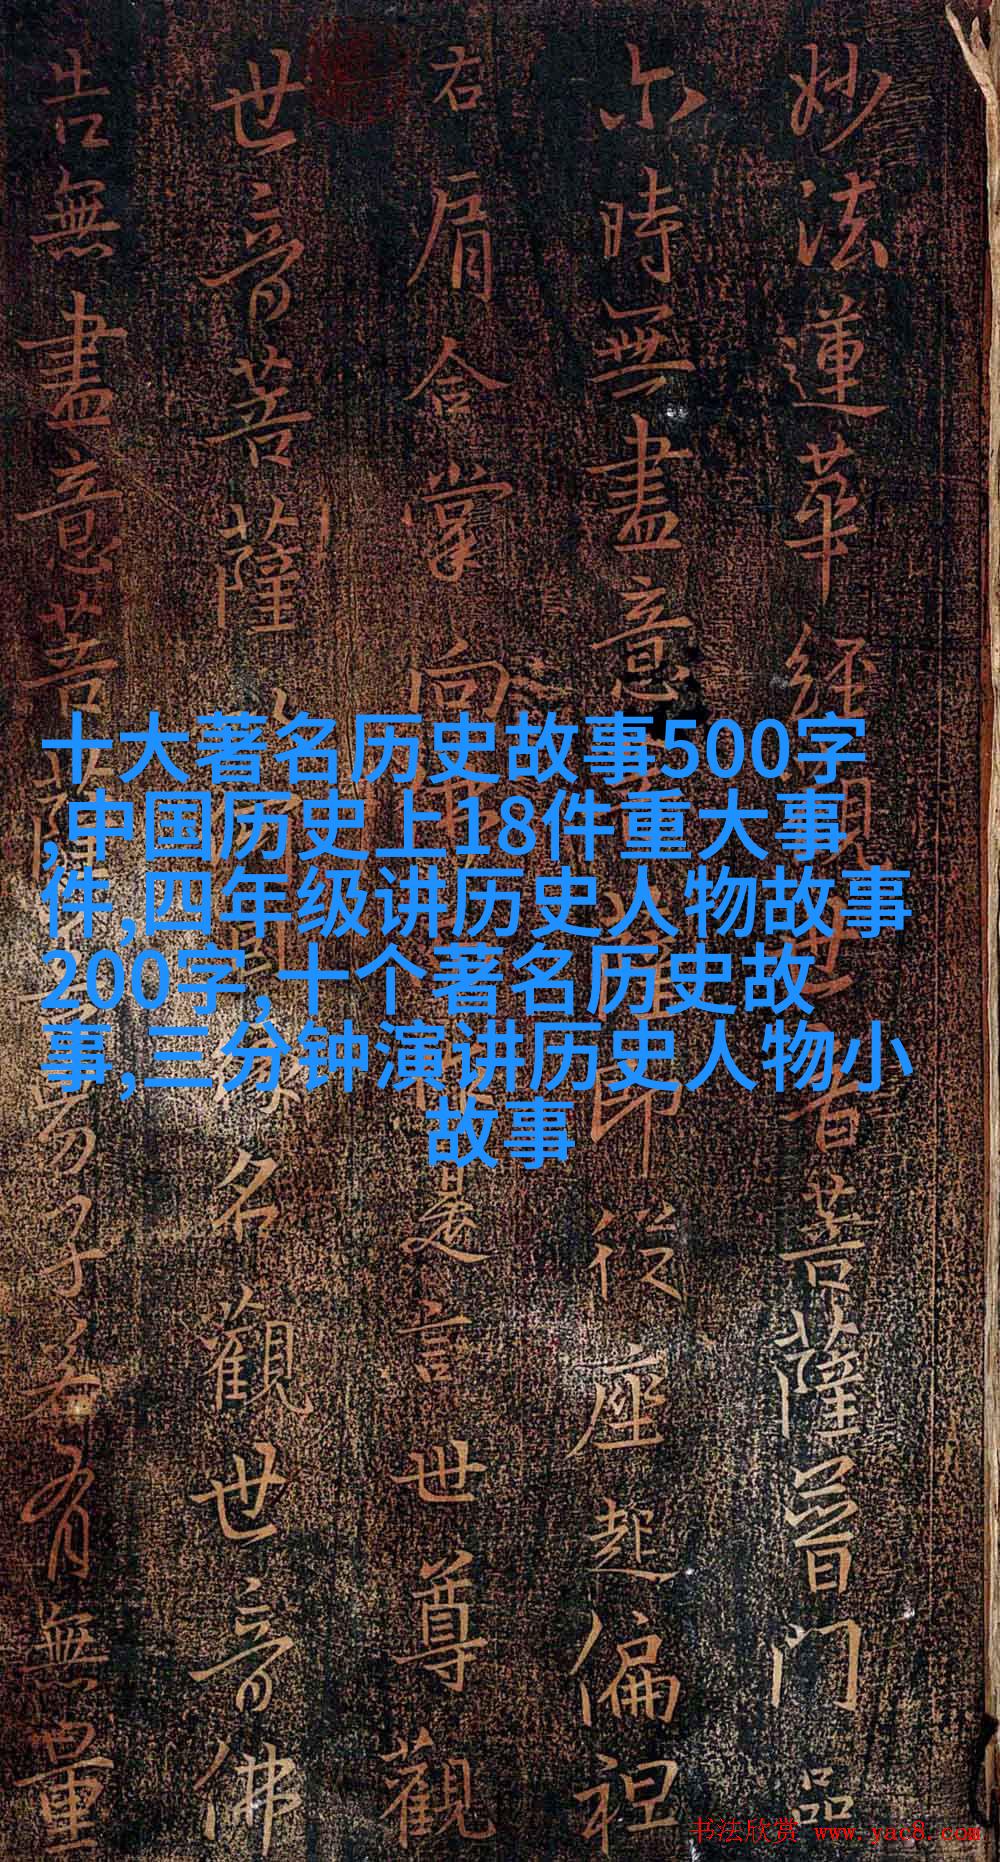 妙法蓮華經觀世音菩薩普門品
尔時無盡意薩即從座起偏袒
右肩合掌向是言世尊觀
世音菩薩以何因緣名觀世音佛
告無盡意菩薩善男子若有無量
十大著名历史故事500字
,中国历史上18件重大事
件,四年级讲历史人物故事
200字,十个著名历史故
事,三分钟演讲历史人物小
故事
书法欣赏 www.yac8.com